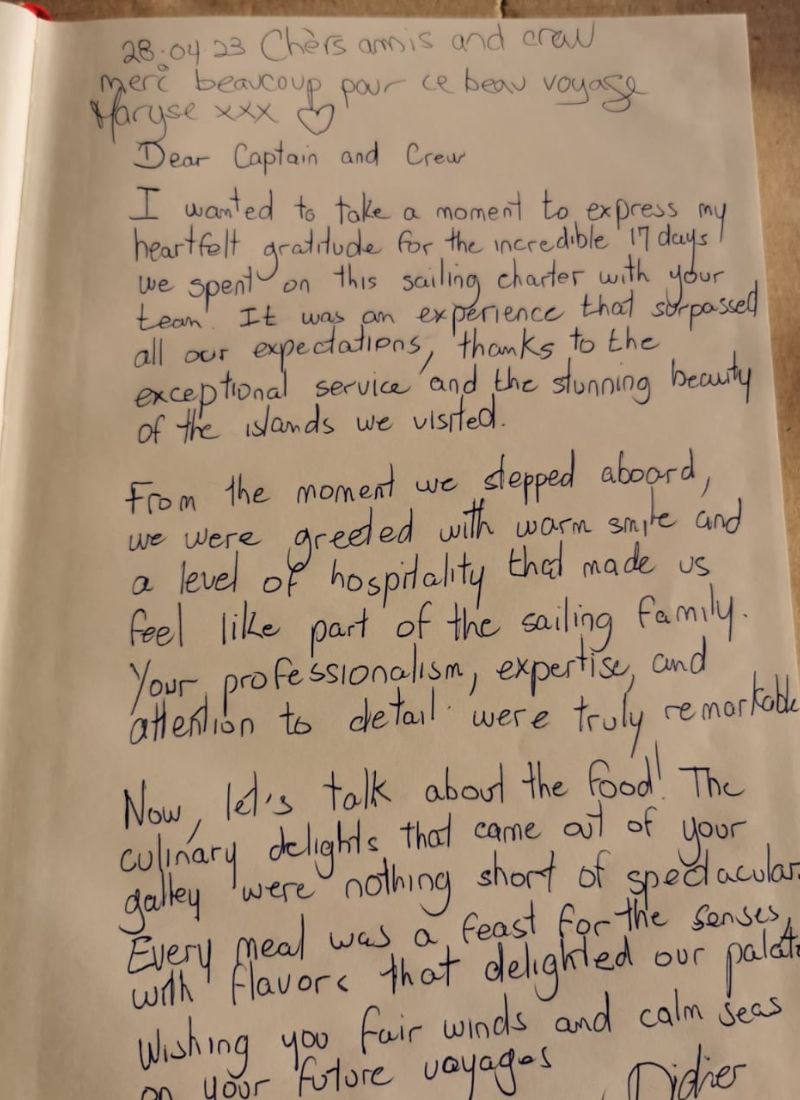 28.04 23 Chèrs amis and crew
merci beaucoup pour ce beau voyage
Maryse xxx ♡
Dear Captain and Crew
I wanted to take a moment to express my
heartfelt gratitude for the incredible 17 days
we spent on this sailing charter with your
team. It was an experience that surpassed
all our expectations, thanks to the
exceptional service and the stunning beauty
of the islands we visited.
From the moment we stepped aboard,
we were greeted with warm smile and
a level of hospitality that made us
feel like part of the sailing family.
Your professionalism, expertise, and
attention to detail were truly remarkable
Now, let's talk about the food! The
culinary delights that came out of your
galley were nothing short of spectacular.
Every meal was a feast for the senses,
with flavors that delighted our palat
Wishing you fair winds and calm seas
on your future voyages Didier